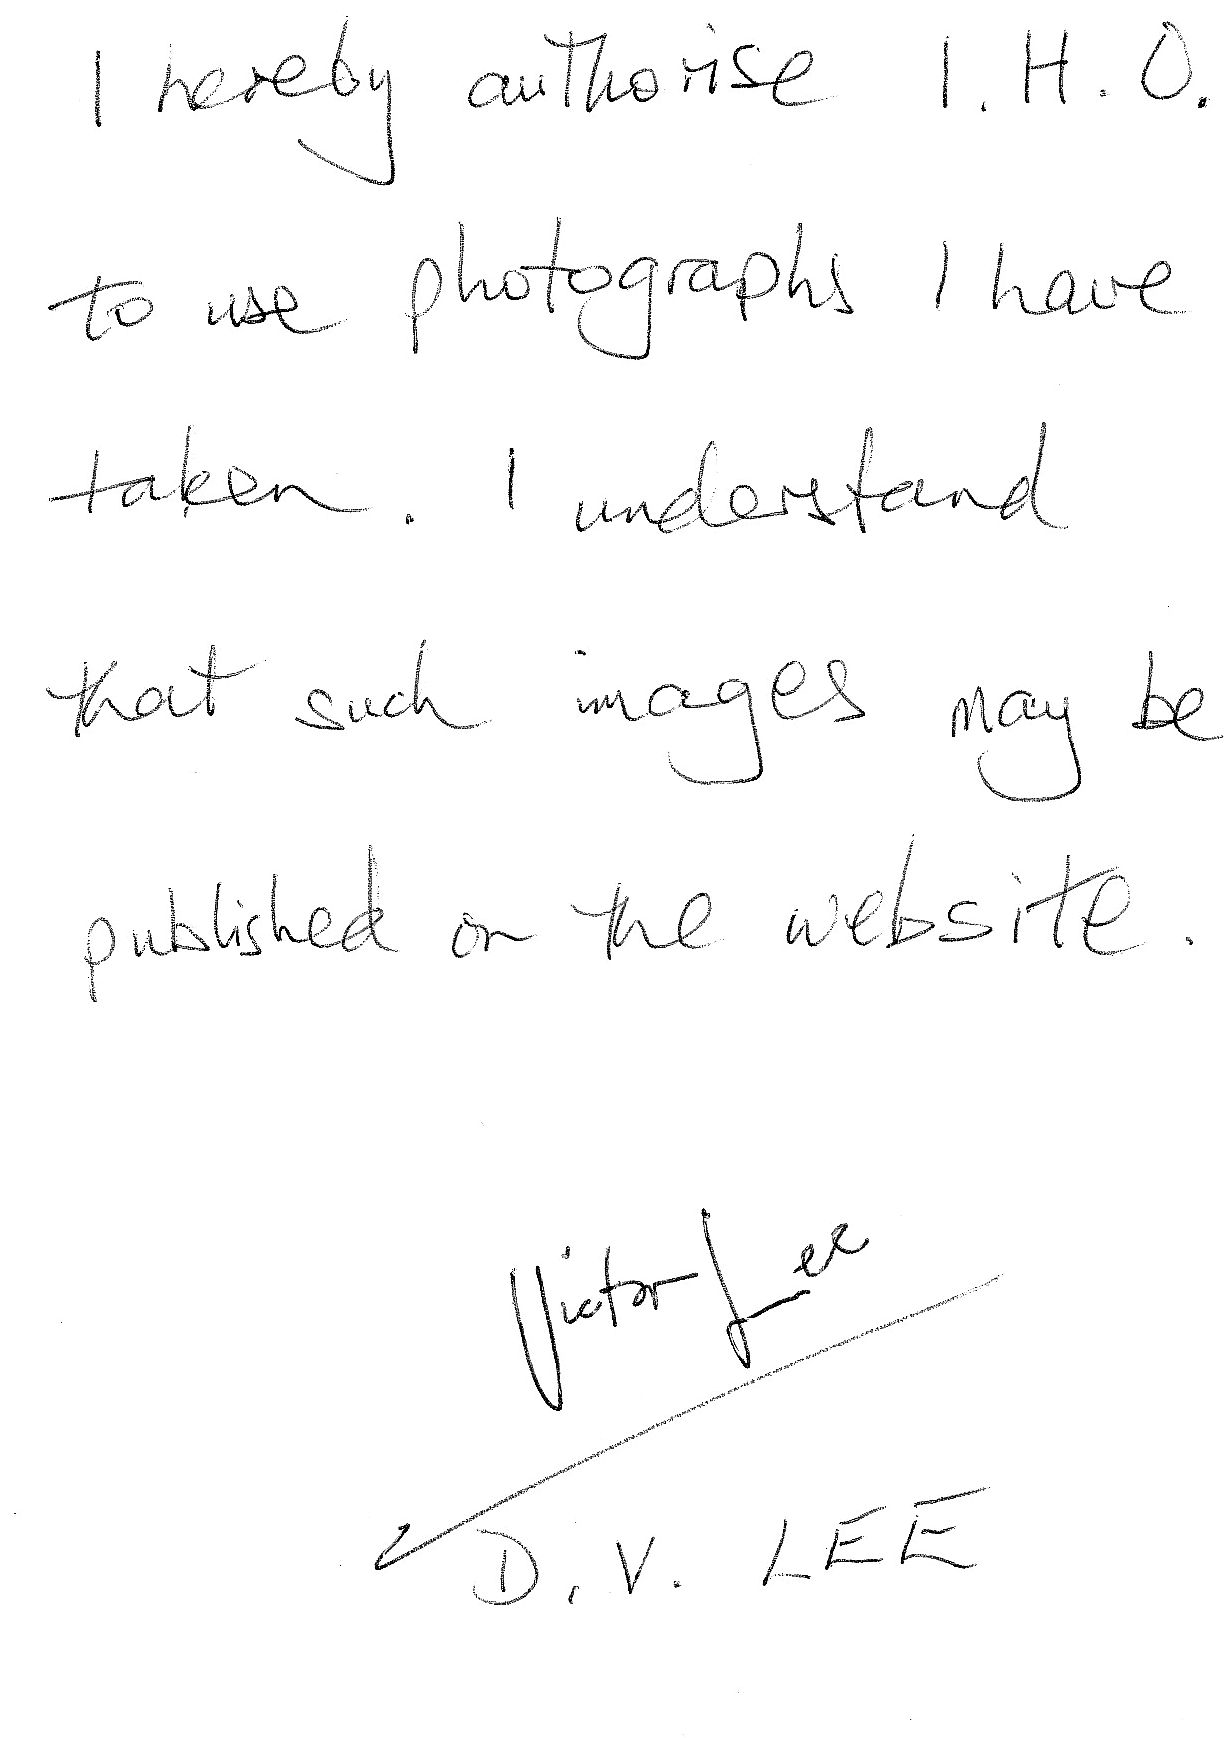 I hereby authorise I.H.O.
to use photographs I have
taken. I understand
that such images may be
published on the website.
Victor Lee
D. V. LEE